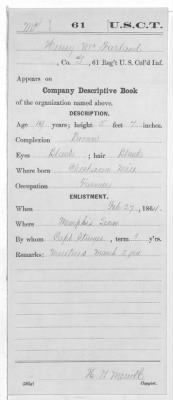 61 U.S.C.T.
Henry Mc Farland
, Co. F, 61 Reg't U. S. Col'd Inf.
Appears on
Company Descriptive Book
of the organization named above.
DESCRIPTION.
Age years; height 5 feet 7 inches.
Complexion Brown
Eyes Black; hair Black
Where born Miss
Occupation Farmer
ENLISTMENT.
When Feb 27, 1864.
Where Memphis Tenn
By whom Capt , term 3 y'rs.
Remarks: Mustered March
Copyist.